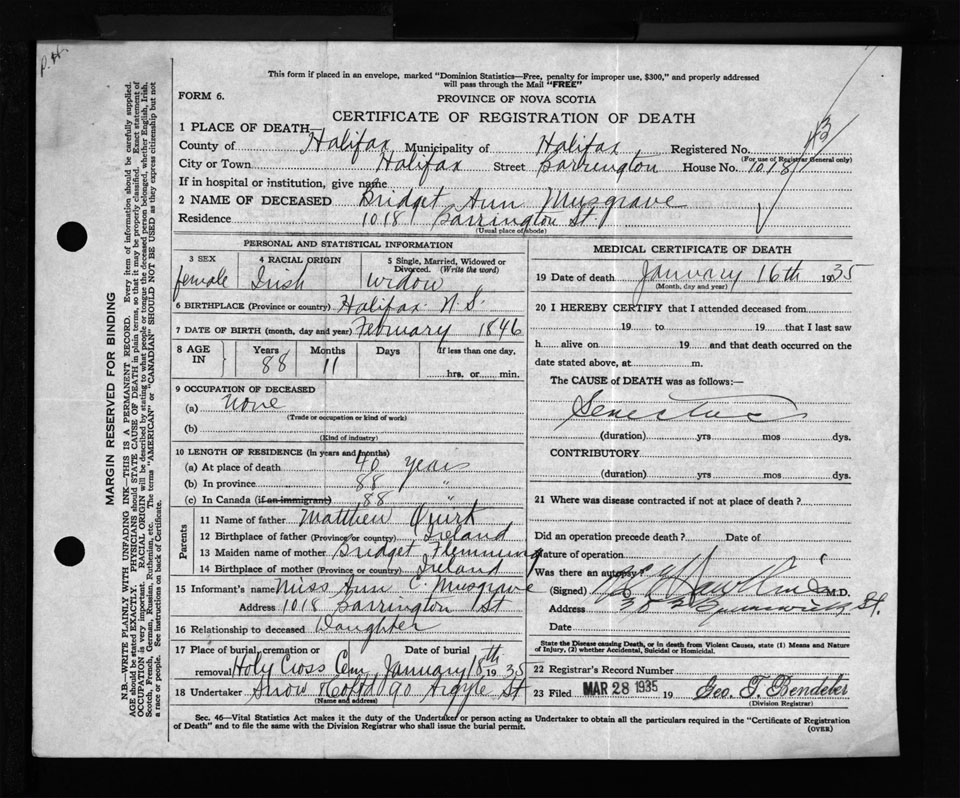 P.H.
This form if placed in an envelope, marked "Dominion Statistics—Free, penalty for improper use, $300," and properly addressed
will pass through the Mail "FREE"
FORM 6.
PROVINCE OF NOVA SCOTIA
CERTIFICATE OF REGISTRATION OF DEATH
1 PLACE OF DEATH
County of Halifax Municipality of Halifax Registered No.
(For use of Registrar General only)
City or Town Halifax Street Barrington House No. 1018
If in hospital or institution, give name
2 NAME OF DECEASED Bridget Ann Musgrave
Residence 1018 Barrington St.
(Usual place of abode)
PERSONAL AND STATISTICAL INFORMATION
3 SEX 4 RACIAL ORIGIN 5 Single, Married, Widowed or
Divorced. (Write the word)
female Irish Widow
6 BIRTHPLACE (Province or country) Halifax N.S.
7 DATE OF BIRTH (month, day and year) February 1846
8 AGE IN Years Months Days If less than one day,
88 11 hrs. or min.
9 OCCUPATION OF DECEASED
(a) None
(Trade or occupation or kind of work)
(b)
(Kind of industry)
10 LENGTH OF RESIDENCE (in years and months)
(a) At place of death 40 years
(b) In province 88 "
(c) In Canada (if an immigrant) 88 "
Parents
11 Name of father Matthew Quirk
12 Birthplace of father (Province or country) Ireland
13 Maiden name of mother Bridget Flemming
14 Birthplace of mother (Province or country) Ireland
15 Informant's name Miss Ann C. Musgrave
Address 1018 Barrington St
16 Relationship to deceased Daughter
17 Place of burial, cremation or Date of burial
removal Holy Cross Cem January 18th 1935
18 Undertaker Snow & Co Ltd 90 Argyle St
(Name and address)
MEDICAL CERTIFICATE OF DEATH
19 Date of death January 16th 1935
(Month, day and year)
20 I HEREBY CERTIFY that I attended deceased from
19 to 19 that I last saw
h alive on 19 and that death occurred on the
date stated above, at m.
The CAUSE of DEATH was as follows:—
Senectus
(duration) yrs mos dys.
CONTRIBUTORY
(duration) yrs mos dys.
21 Where was disease contracted if not at place of death?
Did an operation precede death? Date of
Nature of operation
Was there an autopsy?
(Signed) M.D.
Address Brunswick St.
Date
State the Disease causing Death, or in death from Violent Causes, state (1) Means and Nature
of Injury, (2) whether Accidental, Suicidal or Homicidal.
22 Registrar's Record Number
23 Filed MAR 28 1935 19 Geo. T. Bendeler
(Division Registrar)
Sec. 46—Vital Statistics Act makes it the duty of the Undertaker or person acting as Undertaker to obtain all the particulars required in the "Certificate of Registration
of Death" and to file the same with the Division Registrar who shall issue the burial permit.
(OVER)
MARGIN RESERVED FOR BINDING
N.B.—WRITE PLAINLY WITH UNFADING INK—THIS IS A PERMANENT RECORD. Every item of information should be carefully supplied.
AGE should be stated EXACTLY. PHYSICIANS should STATE CAUSE OF DEATH in plain terms, so that it may be properly classified. Exact statement of
OCCUPATION is very important. RACIAL ORIGIN will be described by stating to what people or tongue the deceased person belonged, whether English, Irish,
Scotch, French, German, Russian, Ruthenian, etc. The terms "AMERICAN" or "CANADIAN" SHOULD NOT BE USED as they express citizenship but not
a race or people. See instructions on back of Certificate.